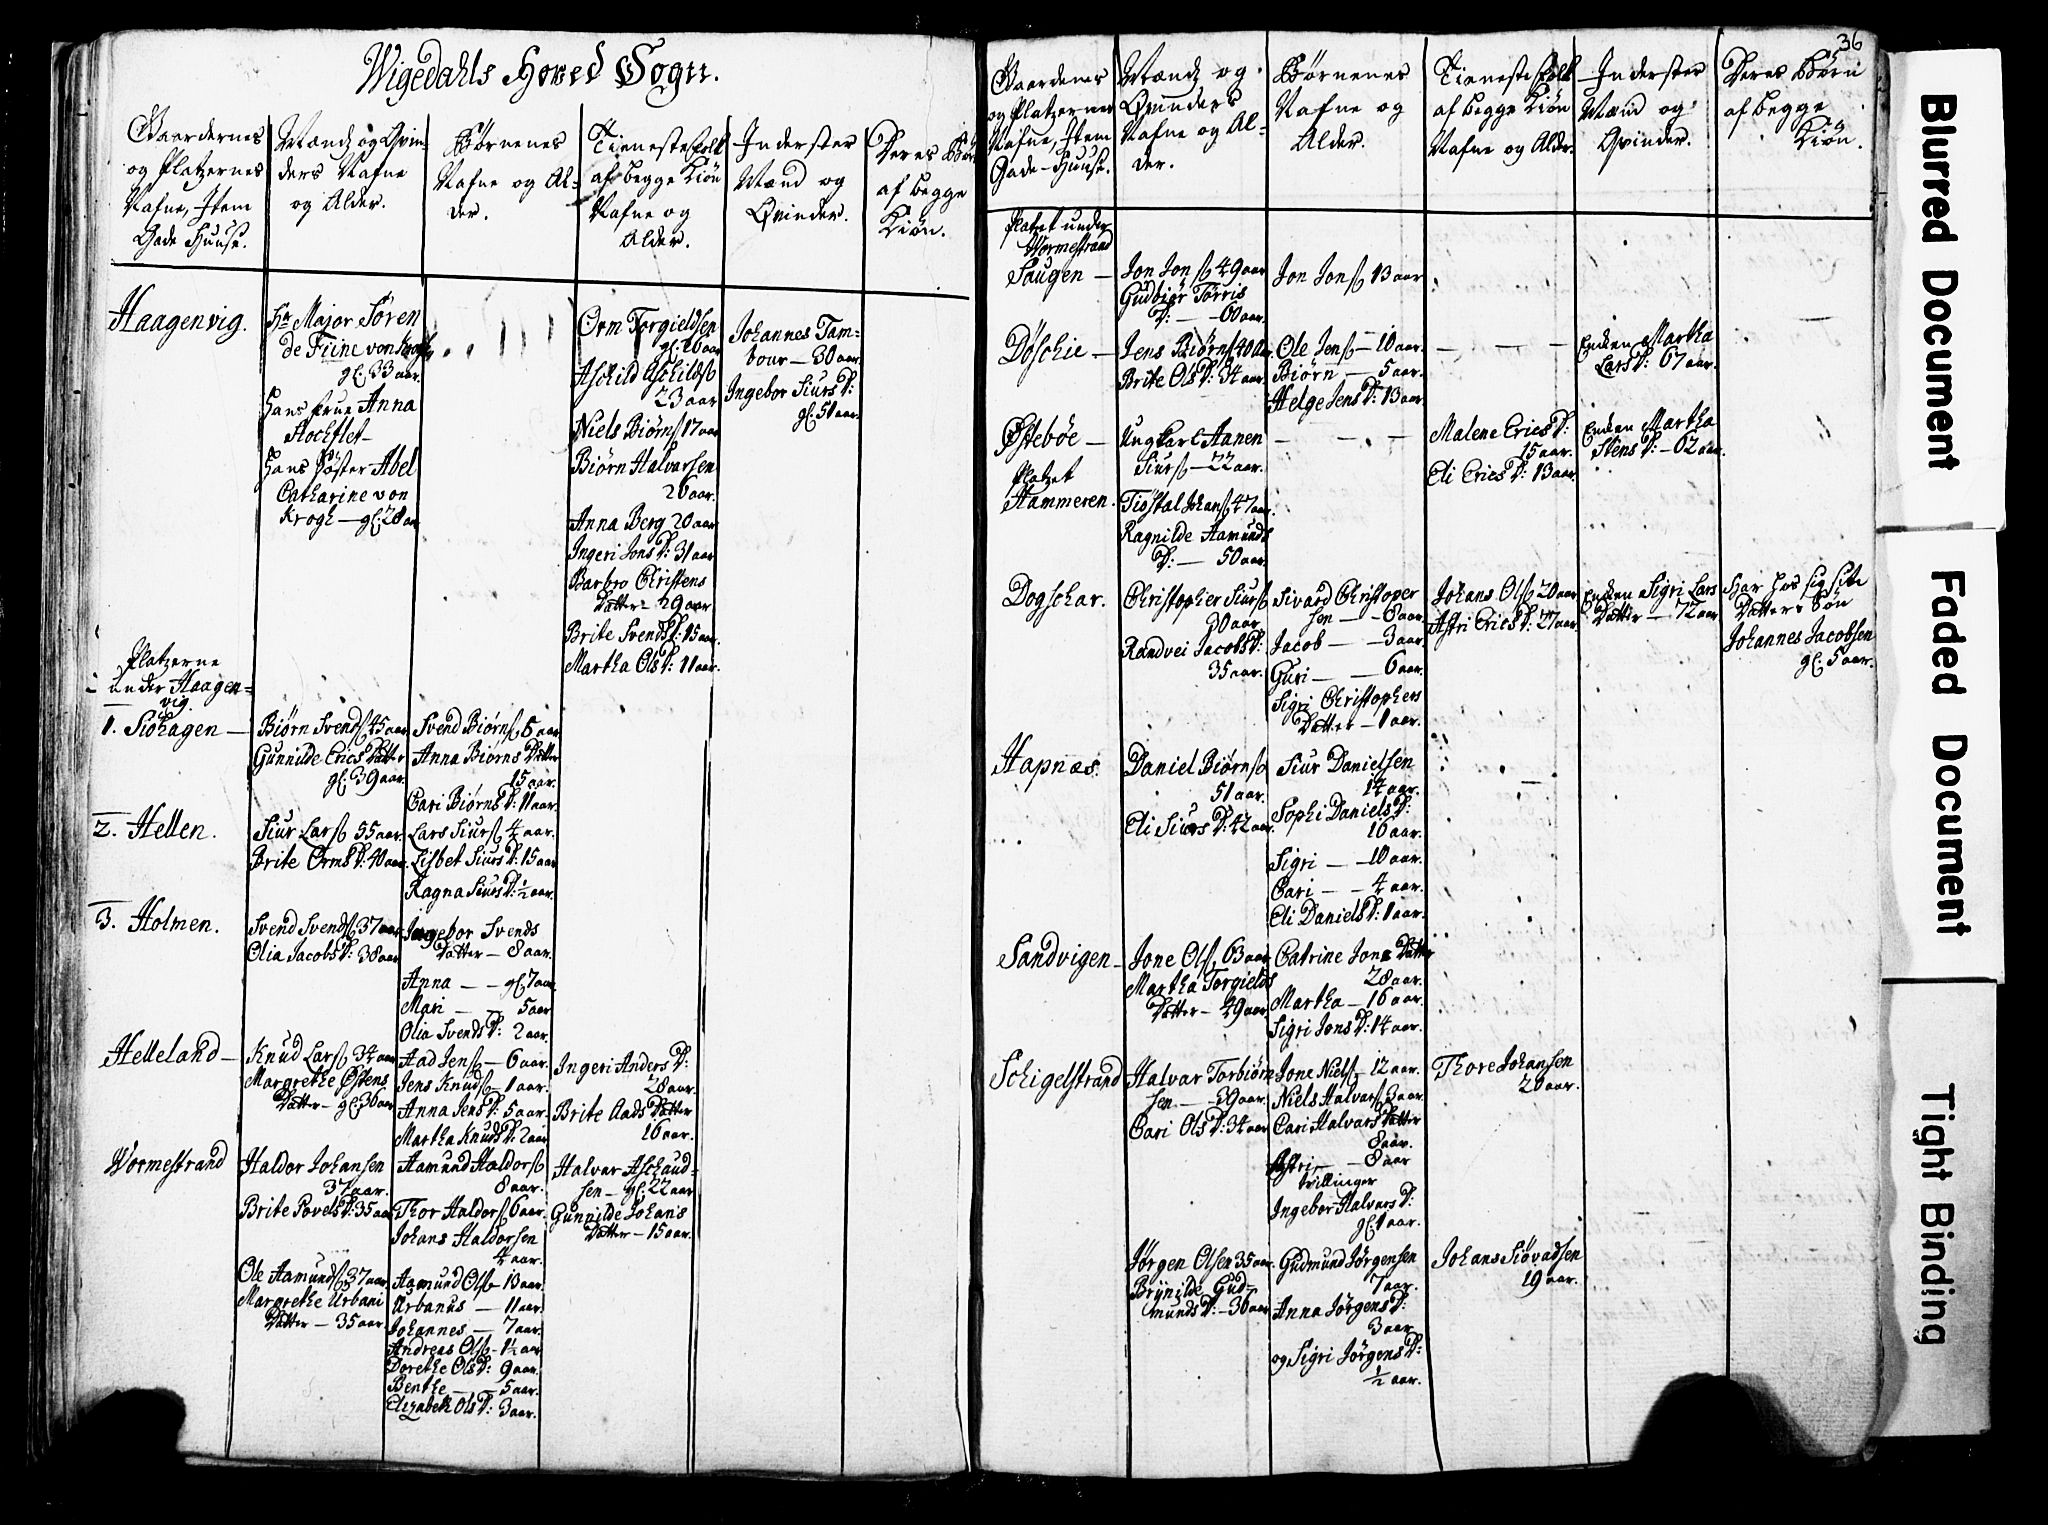 Wigedahls Hoved Sogn.
Gaardernes
og Platzernes
Nafne, Item
Gade Huuse.
Mændz og Qvin-
ders Nafne
og Alder.
Børnenes
Nafne og Al-
der.
Tieneste Folk
af begge Kiøn
Nafne og
Alder.
Inderster
Mænd og
Qvinder.
Deres Børn
af begge
Kiøn.
Haagenvig.
Hr Major Søren
de Fiine von Krogh
gl. 33 aar.
Hans frue Anna
Stochflet
Hans Søster Abel
Catharine von
Krogh — gl. 28 aar
Orm Torgieldsen
gl. 26 aar
Aschild Aschilds.
23 aar
Niels Biørns. 17 aar
Biørn Halvarsen
26 aar.
Anna Berg 20 aar
Ingeri Jons D: 31 aar
Barbro Christens
Datter — 29 aar
Brite Svends D: 15 aar.
Martha Ols D: 11 aar.
Johannes Tam-
bour — 30 aar.
Ingebor Siurs D:
gl. 51 aar.
Platzerne
under Haagen-
vig.
1. Siöhagen —
Biørn Svends. 45 aar
Gunnilde Erics Datter
gl. 39 aar.
Svend Biørns. 5 aar
Anna Biørns Datter
15 aar.
Cari Biørns D: 11 aar.
2. Hellen.
Siur Lars. 55 aar.
Brite Orms D: 40 aar.
Lars Siurs. 4 aar.
Lisbet Siurs D: 15 aar
Ragna Siurs D: ½ aar.
3. Holmen.
Svend Svends. 37 aar
Olia Jacobs D: 38 aar
Ingebor Svends
Datter — 8 aar.
Anna — — gl. 7 aar.
Mari — 5 aar
Olia Svends D: 2 aar.
Helleland —
Knud Lars. 34 aar
Margrethe Østens
Datter — gl. 36 aar
Aad Jens. — 6 aar.
Jens Knuds. — 1 aar.
Anna Jens D: 5 aar.
Martha Knuds D: 2 aar
Ingeri Anders D:
28 aar.
Brite Aads Datter
16 aar.
Wormestrand
Haldor Johansen
37 aar.
Brite Povels D: 35 aar
Aamund Haldors.
8 aar.
Thor Haldors. 6 aar.
Johans Haldorsen
4 aar.
Halvar Aschaud-
sen — gl. 22 aar
Gunnilde Johans
Datter — 15 aar.
Ole Aamunds. 37 aar.
Margrethe Urbani
Datter — 35 aar
Aamund Ols. — 13 aar.
Urbanus — 11 aar.
Johannes — 7 aar.
Andreas Ols. — 1½ aar
Dorethe Ols D: 9 aar.
Benthe — 5 aar.
Elizabeth Ols D: 3 aar.
36
Gaardenes
og Platzernes
Nafne, Item
Gade-Huuse.
Mændz og
Qvinders
Nafne og Al-
der.
Børnenes
Nafne og
Alder.
Tieneste Folk
af begge Kiøn
Nafne og Alder.
Inderster
Mænd og
Qvinder.
Deres Børn
af begge
Kiøn.
Platzet under
Wormestrand
Saugen —
Jon Jons. 49 aar
Gudbiør Torris
D: — 60 aar.
Jon Jons. 13 aar
Döschie —
Jens Biørns. 40 aar.
Brite Ols D: 34 aar.
Ole Jens. — 10 aar.
Biørn — 5 aar.
Helge Jens D: 13 aar.
Enken Martha
Lars D: 67 aar.
Østebøe —
Ungkarl Aanen
Siurs. — 22 aar.
Malene Erics D:
15 aar.
Eli Erics D: 13 aar.
Enken Martha
Stens D: — 62 aar.
Platzet
Hammeren.
Tiøstal Johans. 47 aar.
Ragnilde Aamunds
D: — 50 aar.
Dogschar.
Christopher Siurs.
30 aar.
Randvei Jacobs D:
35 aar.
Sivard Christopher
sen — 8 aar.
Jacob — 3 aar.
Guri — 6 aar.
Sigri Christophers
Datter — 1 aar.
Johans Ols. 20 aar
Astri Erics D: 27 aar.
Enken Sigri Lars
Datter — 72 aar
Har hos sig sin
Datters Søn
Johannes Jacobsen
gl. 5 aar.
Hapnæs.
Daniel Biørns.
51 aar.
Eli Siurs D: 42 aar.
Siur Danielsen
14 aar.
Sophi Daniels D:
16 aar.
Sigri — 10 aar.
Cari — — 4 aar.
Eli Daniels D: 1 aar.
Sandvigen —
Jone Ols. 63 aar
Martha Torgields
Datter — 49 aar.
Catrine Jons Datter
28 aar.
Martha — 16 aar.
Sigri Jons D: 14 aar.
Schigelstrand
Halvar Torbiørn
sen — 39 aar.
Cari Ols D: 34 aar
Jone Niels. — 12 aar.
Niels Halvars. 3 aar.
Cari Halvars Datter
8 aar.
Astri — 8 aar
tvillinger
Ingebor Halvars D:
gl. 1 aar.
Thore Johansen
20 aar.
Jørgen Olsen 35 aar.
Brynilde Gud-
munds D: — 36 aar
Gudmund Jørgensen
7 aar.
Anna Jørgens D:
3 aar
og Sigri Jørgens D:
½ aar.
Johans Siøvadsen
19 aar.
Blurred Document
Faded Document
Tight Binding